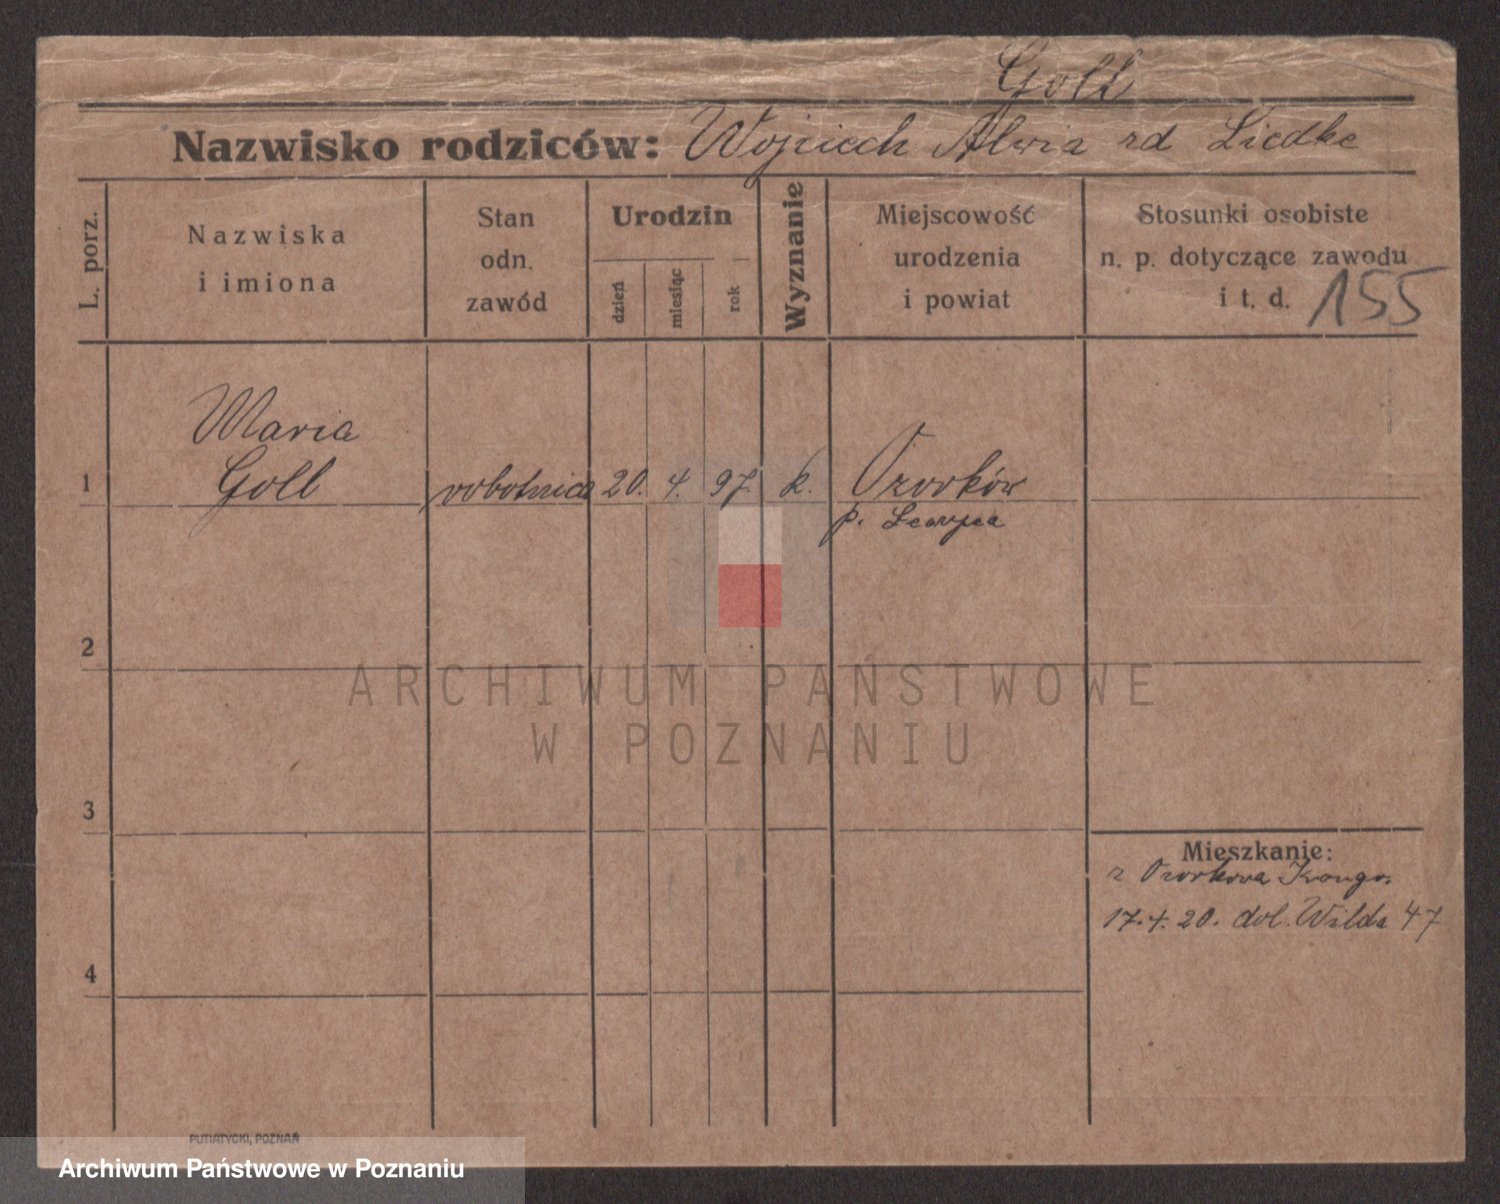 Goll
Nazwisko rodziców: Wojciech Alwia rd Liedke
L. porz.
Nazwiska
i imiona
Stan
odn.
zawód
Urodzin
dzień
miesiąc
rok
Wyznanie
Miejscowość
urodzenia
i powiat
Stosunki osobiste
n. p. dotyczące zawodu
i t. d. 155
Maria
1 Goll robotnica 20. 4. 97 k. Ozorków
p.
2
ARCHIWUM PAŃSTWOWE
W POZNANIU
3
Mieszkanie:
z Ozorkowa
17.4.20. dol. Wilda 47
4
PUTIATYCKI, POZNAŃ
Archiwum Państwowe w Poznaniu